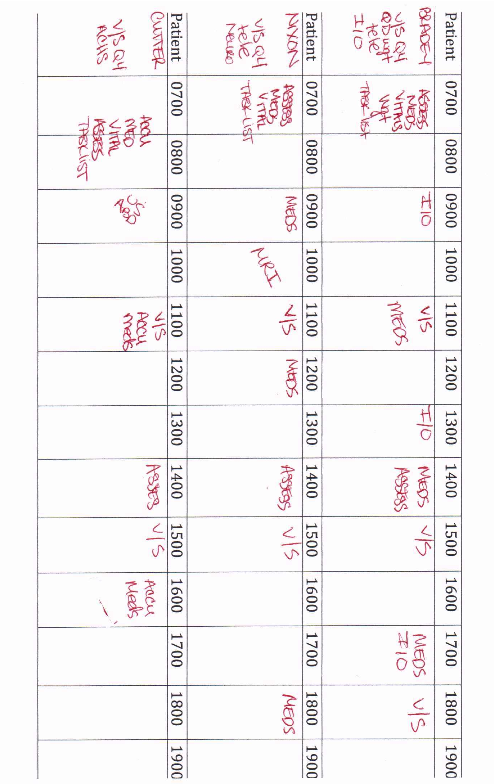 Patient 0700 0800 0900 1000 1100 1200 1300 1400 1500 1600 1700 1800 1900
V/S Q4
QD Wgt
tele
I/O
ASSESS
MEDS
VITALS
Wgt
TASK-LIST
I/O
V/S
MEDS
I/O
MEDS
ASSESS
V/S
MEDS
I/O
V/S
Patient 0700 0800 0900 1000 1100 1200 1300 1400 1500 1600 1700 1800 1900
NIXON
V/S Q4
tele
NEURO
ASSESS
MEDS
VITAL
TASK-LIST
MEDS
MRI
V/S
MEDS
ASSESS
V/S
MEDS
Patient 0700 0800 0900 1000 1100 1200 1300 1400 1500 1600 1700 1800 1900
CUTTER
V/S Q4
ACHS
ACCU
MED
VITAL
ASSESS
TASKLIST
V/S
ACCU
meds
ASSESS
V/S
ACCU
Meds